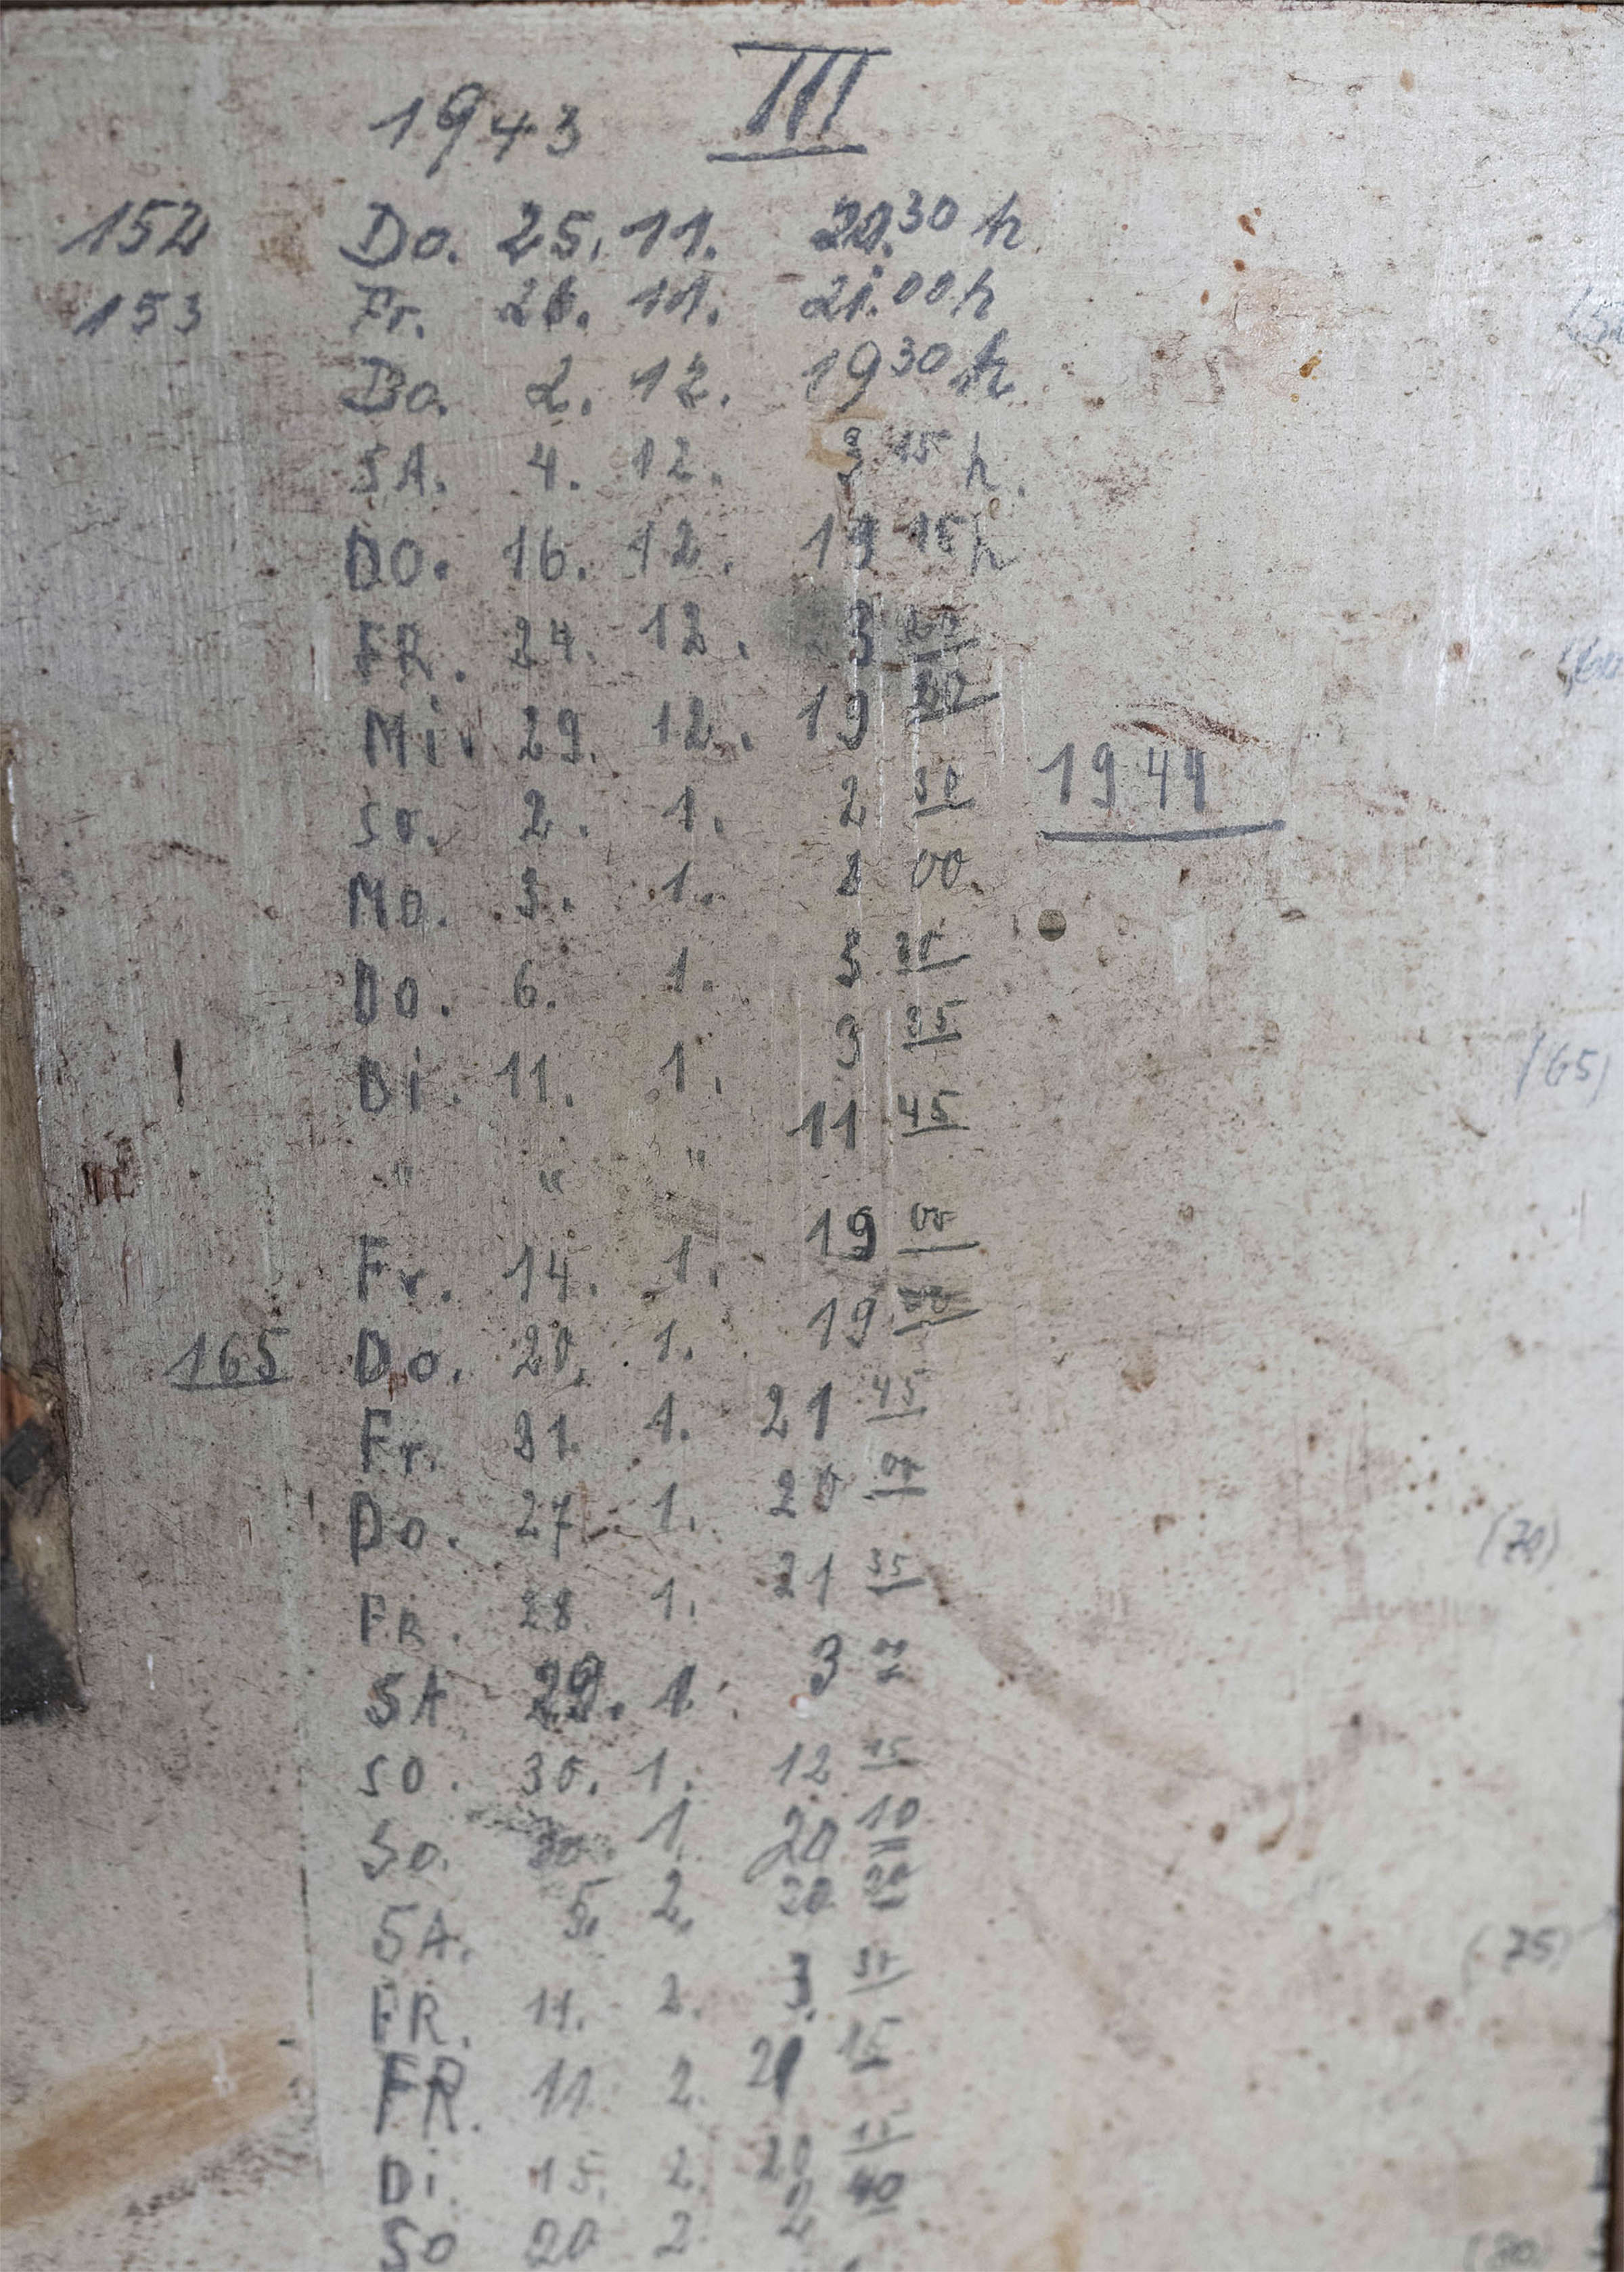 1943 III
152 Do. 25. 11. 20.30 h
153 Fr. 26. 11. 21.00 h
Do. 2. 12. 19 30 h
SA. 4. 12. 3 15 h.
DO. 16. 12. 19 15 h
FR. 24. 12. 3
Mi. 29. 12. 19
1944
So. 2. 1. 2 30
MO. 3. 1. 2 00
DO. 6. 1. 3
Di. 11. 1. 9
" " " 11 45
(65)
Fr. 14. 1. 19 00
165 Do. 20. 1. 19 00
Fr. 21. 1. 21 45
Do. 27. 1. 20 00
(70)
FR. 28. 1. 21 35
SA 29. 1. 3
SO. 30. 1. 12 15
So. 30. 1. 20 10
SA. 5. 2. 20 20
(75)
FR. 11. 2. 3.
FR. 11. 2. 21 15
Di. 15. 2. 20 15
SO 20 2. 2 40
(80)